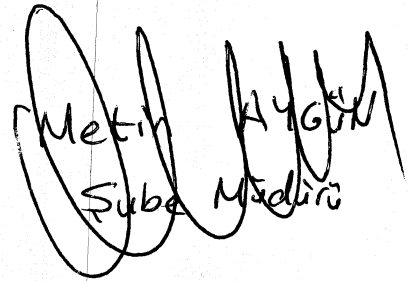 Metin AYGÜN
Şube Müdürü